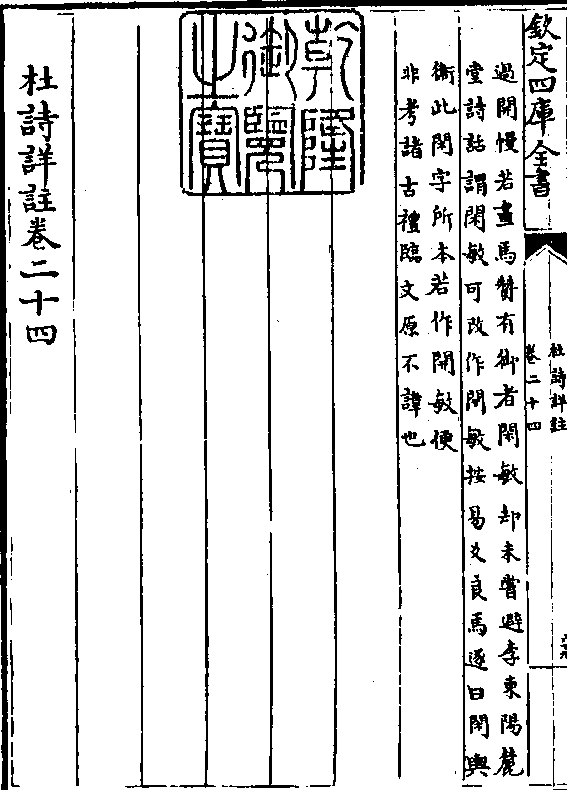 欽定四庫全書
杜詩詳註
卷二十四
過開慢若畫馬贊有御者閑敏却未嘗避李東陽麓
堂詩話謂閑敏可改作開敏按易爻良馬逐曰閑輿
衛此閑字所本若作開敏便
非考諸古禮臨文原不諱也
乾隆
御覽
之寶
杜詩詳註卷二十四